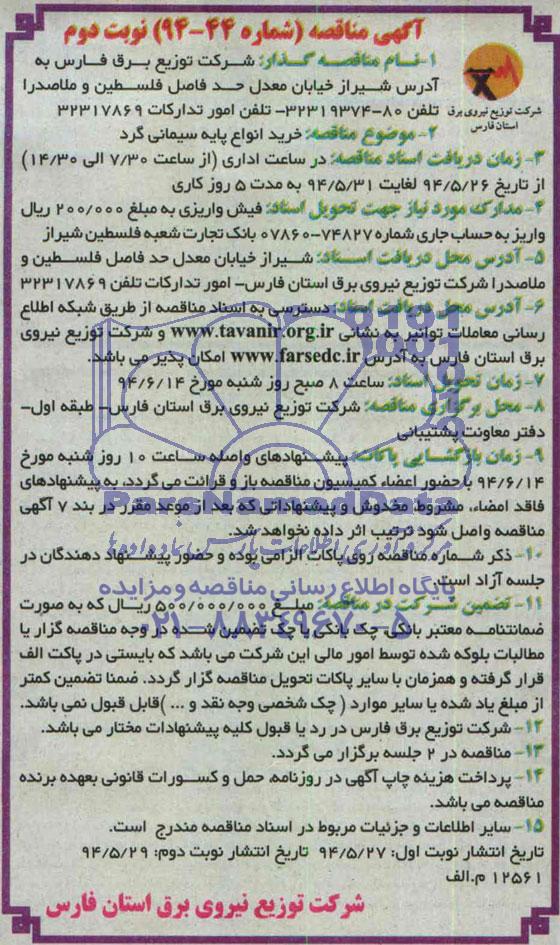 آگهی مناقصه (شماره ۴۴-۹۴) نوبت دوم
شرکت توزیع نیروی برق
استان فارس
۱- نام مناقصه گذار: شرکت توزیع برق فارس به
آدرس شیراز خیابان معدل حد فاصل فلسطین و ملاصدرا
تلفن ۸۰-۳۲۳۱۹۳۷۴- تلفن امور تدارکات ۳۲۳۱۷۸۶۹
۲- موضوع مناقصه: خرید انواع پایه سیمانی گرد
۳- زمان دریافت اسناد مناقصه: در ساعت اداری (از ساعت ۷/۳۰ الی ۱۴/۳۰)
از تاریخ ۹۴/۵/۲۶ لغایت ۹۴/۵/۳۱ به مدت ۵ روز کاری
۴- مدارک مورد نیاز جهت تحویل اسناد: فیش واریزی به مبلغ ۲۰۰/۰۰۰ ریال
واریز به حساب جاری شماره ۷۴۸۲۷-۰۷۸۶۰ بانک تجارت شعبه فلسطین شیراز
۵- آدرس محل دریافت اسناد: شیراز خیابان معدل حد فاصل فلسطین و
ملاصدرا شرکت توزیع نیروی برق استان فارس- امور تدارکات تلفن ۳۲۳۱۷۸۶۹
۶- آدرس محل دریافت اسناد: دسترسی به اسناد مناقصه از طریق شبکه اطلاع
رسانی معاملات توانیر به نشانی www.tavanir.org.ir و شرکت توزیع نیروی
برق استان فارس به آدرس www.farsedc.ir امکان پذیر می باشد.
۷- زمان تحویل اسناد: ساعت ۸ صبح روز شنبه مورخ ۹۴/۶/۱۴
۸- محل برگزاری مناقصه: شرکت توزیع نیروی برق استان فارس- طبقه اول-
دفتر معاونت پشتیبانی
۹- زمان بازگشایی پاکات: پیشنهادهای واصله ساعت ۱۰ روز شنبه مورخ
۹۴/۶/۱۴ با حضور اعضاء کمیسیون مناقصه باز و قرائت می گردد، به پیشنهادهای
فاقد امضاء، مشروط، مخدوش و پیشنهاداتی که بعد از موعد مقرر در بند ۷ آگهی
مناقصه واصل شود ترتیب اثر داده نخواهد شد.
۱۰- ذکر شماره مناقصه روی پاکات الزامی بوده و حضور پیشنهاد دهندگان در
جلسه آزاد است.
۱۱- تضمین شرکت در مناقصه: مبلغ ۵۰۰/۰۰۰/۰۰۰ ریال که به صورت
ضمانتنامه معتبر بانکی، چک بانکی یا چک تضمین شده در وجه مناقصه گزار یا
مطالبات بلوکه شده توسط امور مالی این شرکت می باشد که بایستی در پاکت الف
قرار گرفته و همزمان با سایر پاکات تحویل مناقصه گزار گردد. ضمنا تضمین کمتر
از مبلغ یاد شده یا سایر موارد ( چک شخصی وجه نقد و ... )قابل قبول نمی باشد.
۱۲- شرکت توزیع برق فارس در رد یا قبول کلیه پیشنهادات مختار می باشد.
۱۳- مناقصه در ۲ جلسه برگزار می گردد.
۱۴- پرداخت هزینه چاپ آگهی در روزنامه، حمل و کسورات قانونی بعهده برنده
مناقصه می باشد.
۱۵- سایر اطلاعات و جزئیات مربوط در اسناد مناقصه مندرج است.
تاریخ انتشار نوبت اول: ۹۴/۵/۲۷ تاریخ انتشار نوبت دوم: ۹۴/۵/۲۹
۱۲۵۶۱ م.الف
شرکت توزیع نیروی برق استان فارس
ParsNamadData
پایگاه اطلاع رسانی مناقصه و مزایده
۰۲۱-۸۸۳۴۹۶۷۰-۵